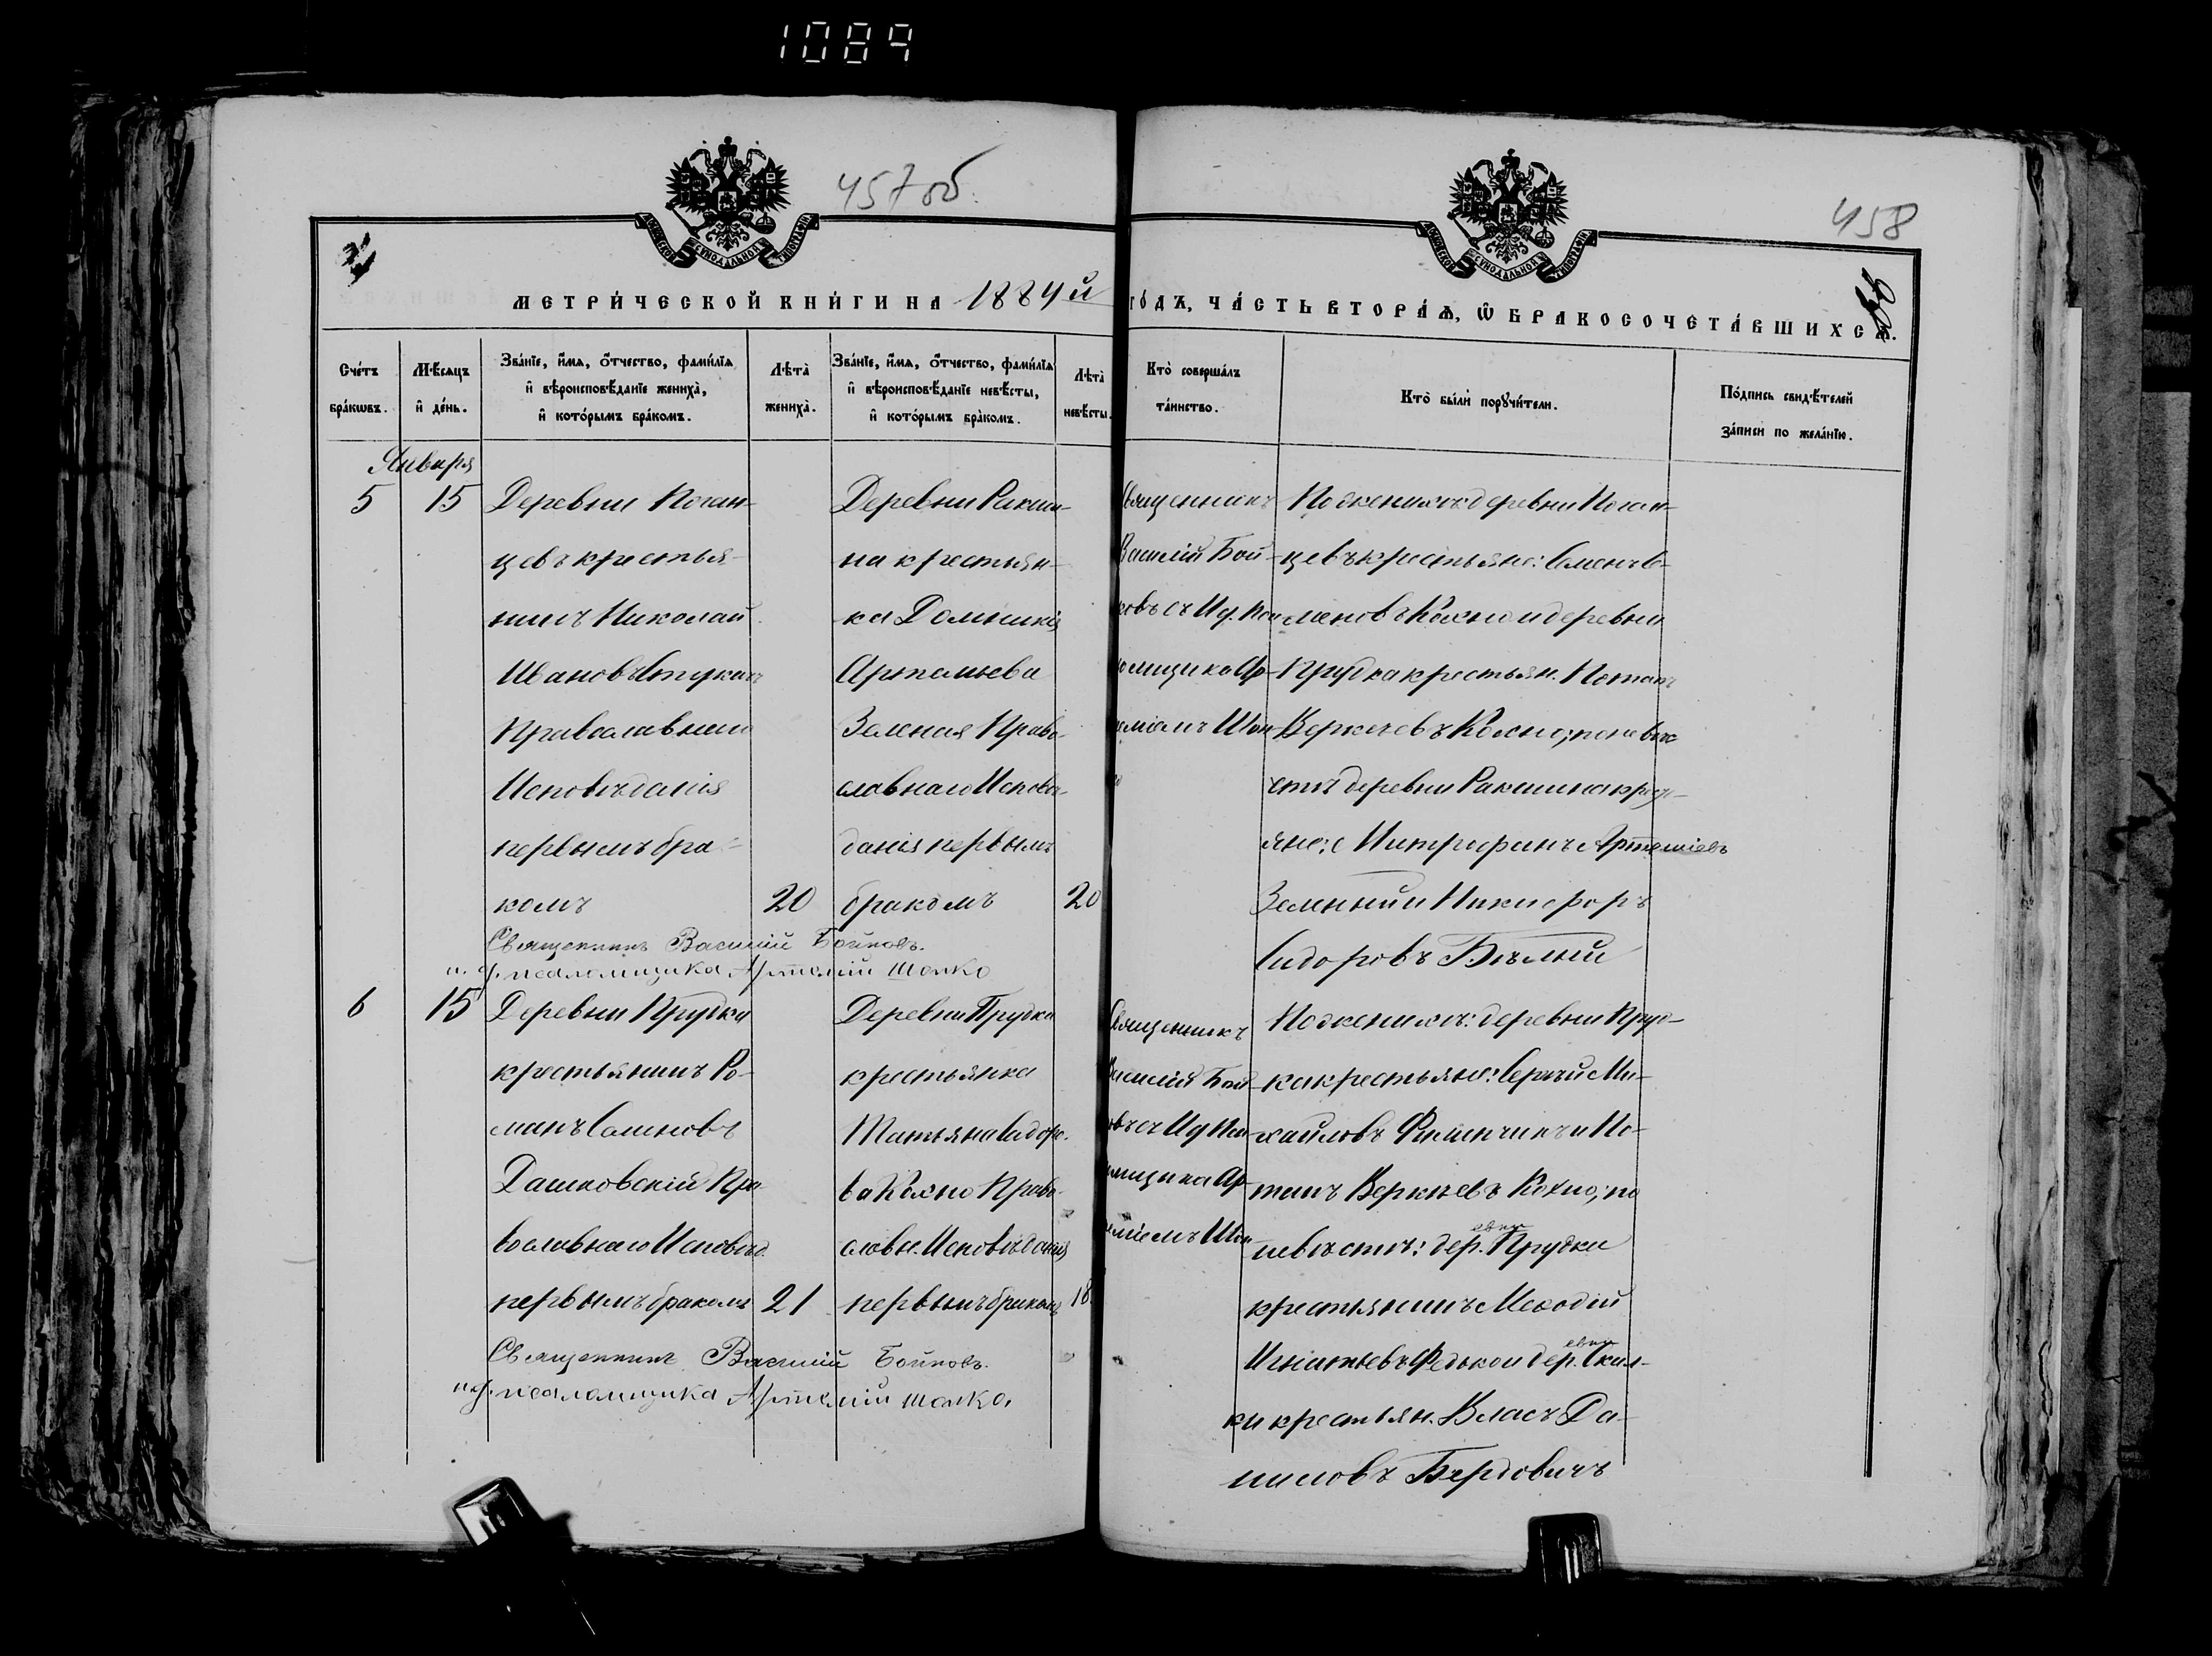 1089
457об
458
МЕТРИ́ЧЕСКОЙ КНИ́ГИ НА 1884й
ГО́ДЪ, ЧА́СТЬ ВТОРА́Ѧ, Ѿ БРАКОСОЧЕТА́ВШИХСѦ.
Сче́тъ бра́кѡвъ.
Мѣ́сяцъ и де́нь.
Зва́нїе, и́мя, о́тчество, фами́лїя
и вѣроисповѣ́данїе жениха̀,
и кото́рымъ бра́комъ.
Лѣта̀ жениха̀.
Зва́нїе, и́мя, о́тчество, фами́лїя
и вѣроисповѣ́данїе невѣ́сты,
и кото́рымъ бра́комъ.
Лѣта̀ невѣ́сты.
Кто̀ соверша́лъ
та́инство.
Кто̀ бы́ли порꙋчи́тели.
По́дпись свидѣ́телей
за́писи по жела́нїю.
Января
5
15
Деревни Поган-
цевъ крестья-
нинъ Николай
Ивановъ
Православнаго
Исповѣданія
первымъ бра-
комъ
20
Деревни Ракши-
на крестьян-
ка Домникія
Артемьева
Зеленая Право-
славнаго Исповѣ-
данія первымъ
бракомъ
20
Священникъ
Василій Бой-
ковъ съ Ид. Пса-
ломщика Ар-
теміемъ Шом-
По женихѣ: деревни Поган-
цевъ крестьяне: Семенъ Се-
меновъ Кохно и деревни
Прудка крестьян. Потапъ
Веркеевъ Кохно; по невѣ-
стѣ деревни Ракшина крест-
яне: Митрофанъ Артеміевъ
Зеленый и Никифоръ
Сидоровъ Бѣлый
Священникъ Василій Бойковъ.
и. д. псаломщика Артемій Шомко
6
15
Деревни Прудка
крестьянинъ Ро-
манъ Семеновъ
Дашковскій Пра-
вославнаго Исповѣд.
первымъ бракомъ
21
Деревни Прудка
крестьянка
Татьяна Сидоро-
ва Кохно Право-
славн. Исповѣданія
первымъ бракомъ
18
Священникъ
Василій Бой-
ковъ съ Ид Пса-
ломщика Ар-
теміемъ Шом-
По женихѣ: деревни Пруд-
ка крестьяне: Сергѣй Ми-
хайловъ и По-
тапъ Веркеевъ Кохно; по
невѣстѣ: деревни Прудка
крестьянинъ Меѳодій
Игнатьевъ Федько и деревни Скал-
ки крестьян. Власъ Да-
ниловъ Бердовичъ
Священникъ Василій Бойковъ.
и д. псаломщика Артемій Шомко.